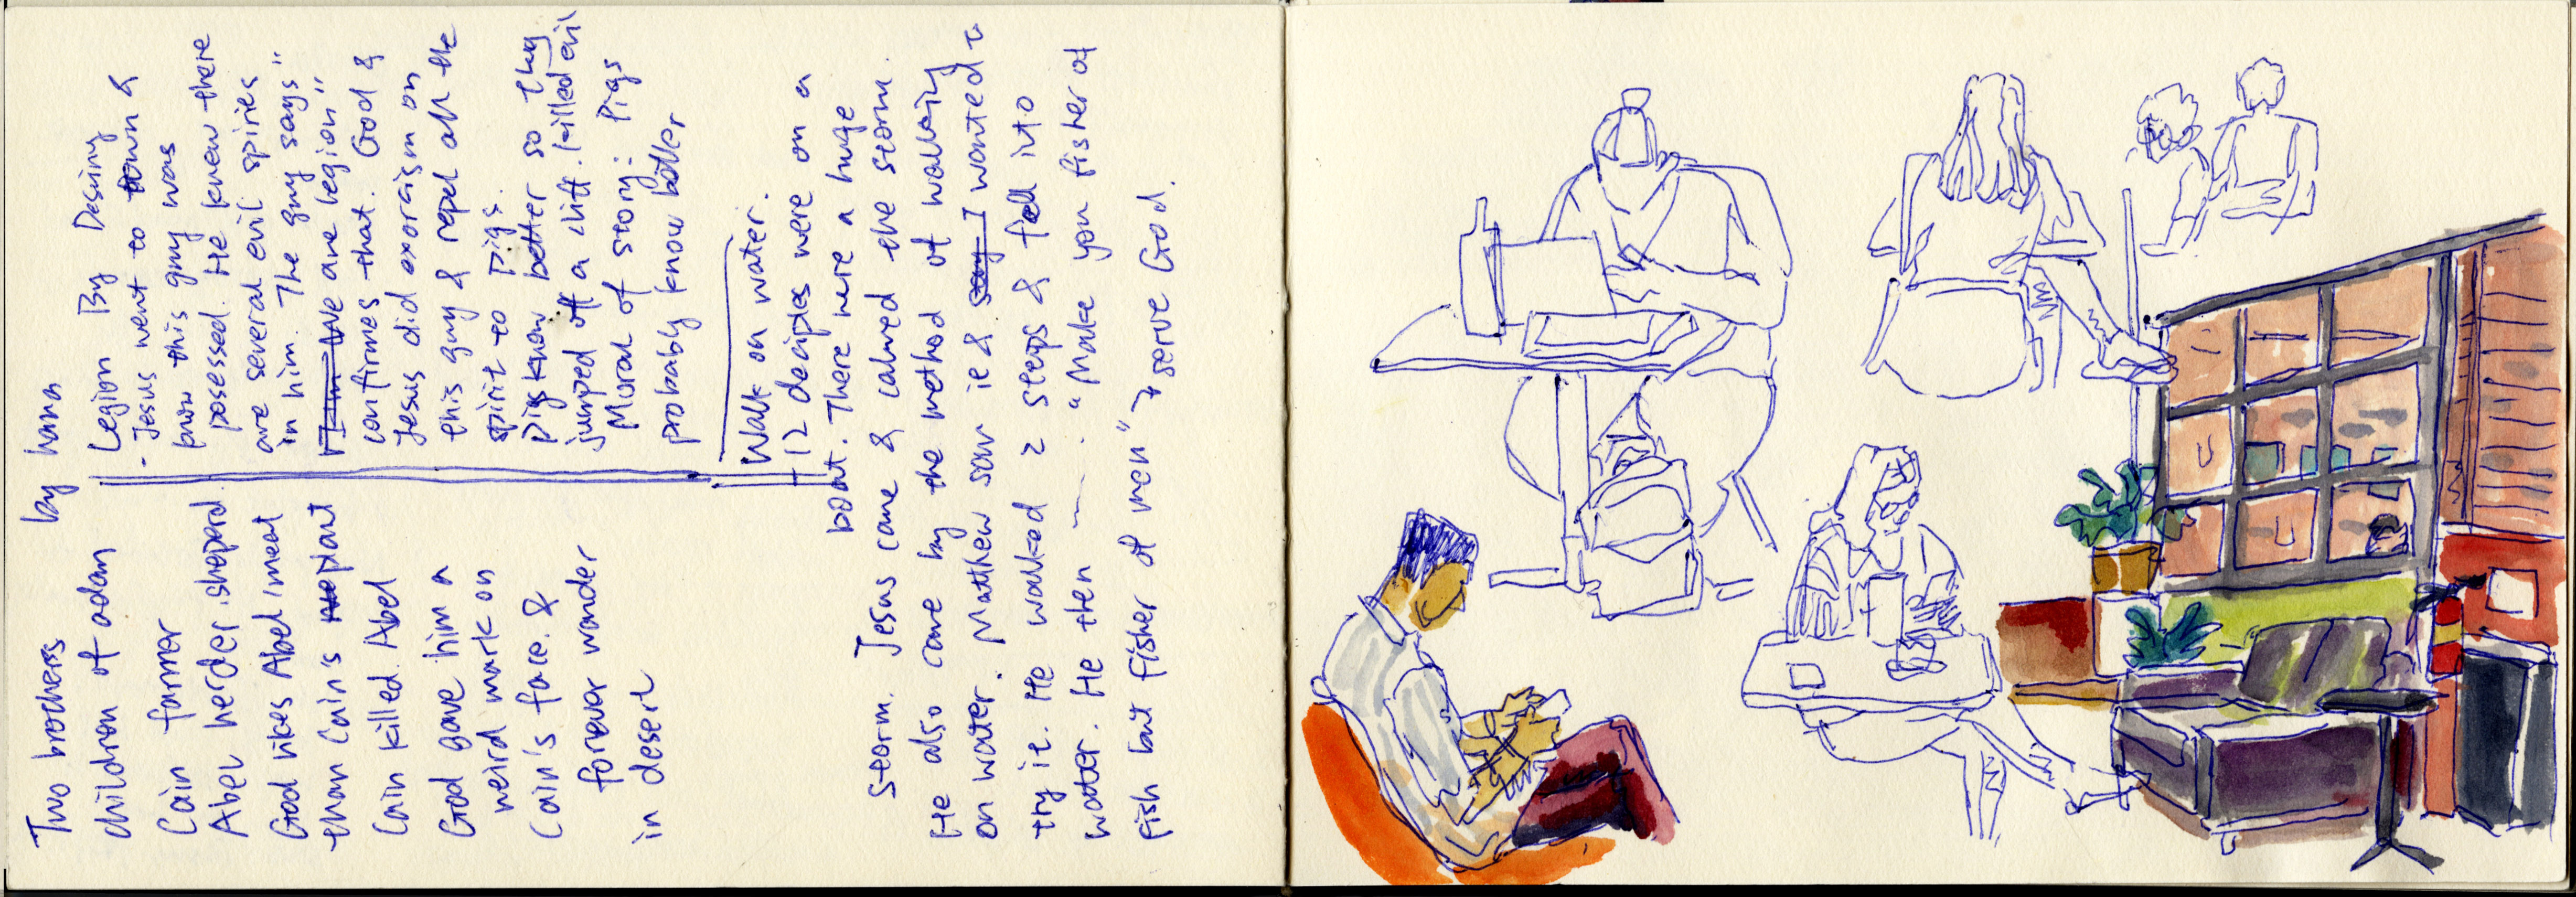 Two brothers by hana
children of adam
Cain farmer
Abel herder.shepard
God likes Abel meat
than Cain's plant
Cain killed Abel
God gave him a
weird mark on
Cain's face. &
forever wander
in desert
Legion By Desiny
- Jesus went to town &
know this guy was
possessed. He knew there
are several evil spiries
in him. The guy says"
"I am We are legion"
confirmes that. God &
Jesus did exorcism on
this guy & repel all the
spirit to pigs.
Pigs know better so they
jumped off a cliff. killed evil
Moral of story: Pigs
probably know better
Walk on water.
12 deciples were on a
boat. There were a huge
storm. Jesus came & calmed the storm.
He also came by the method of walking
on water. Matthew saw it & I wanted to
try it. He walked 2 steps & fell into
water. He then "Make you fisher of
fish but fisher of men" → serve God.